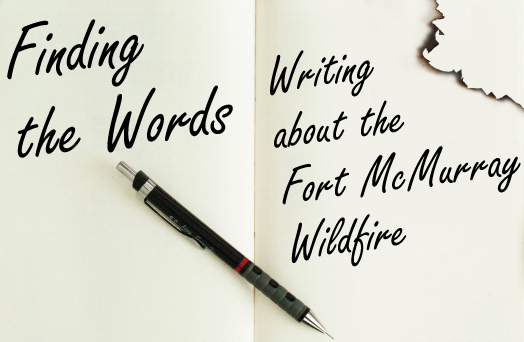 Finding
the Words
Writing
about the
Fort McMurray
Wildfire